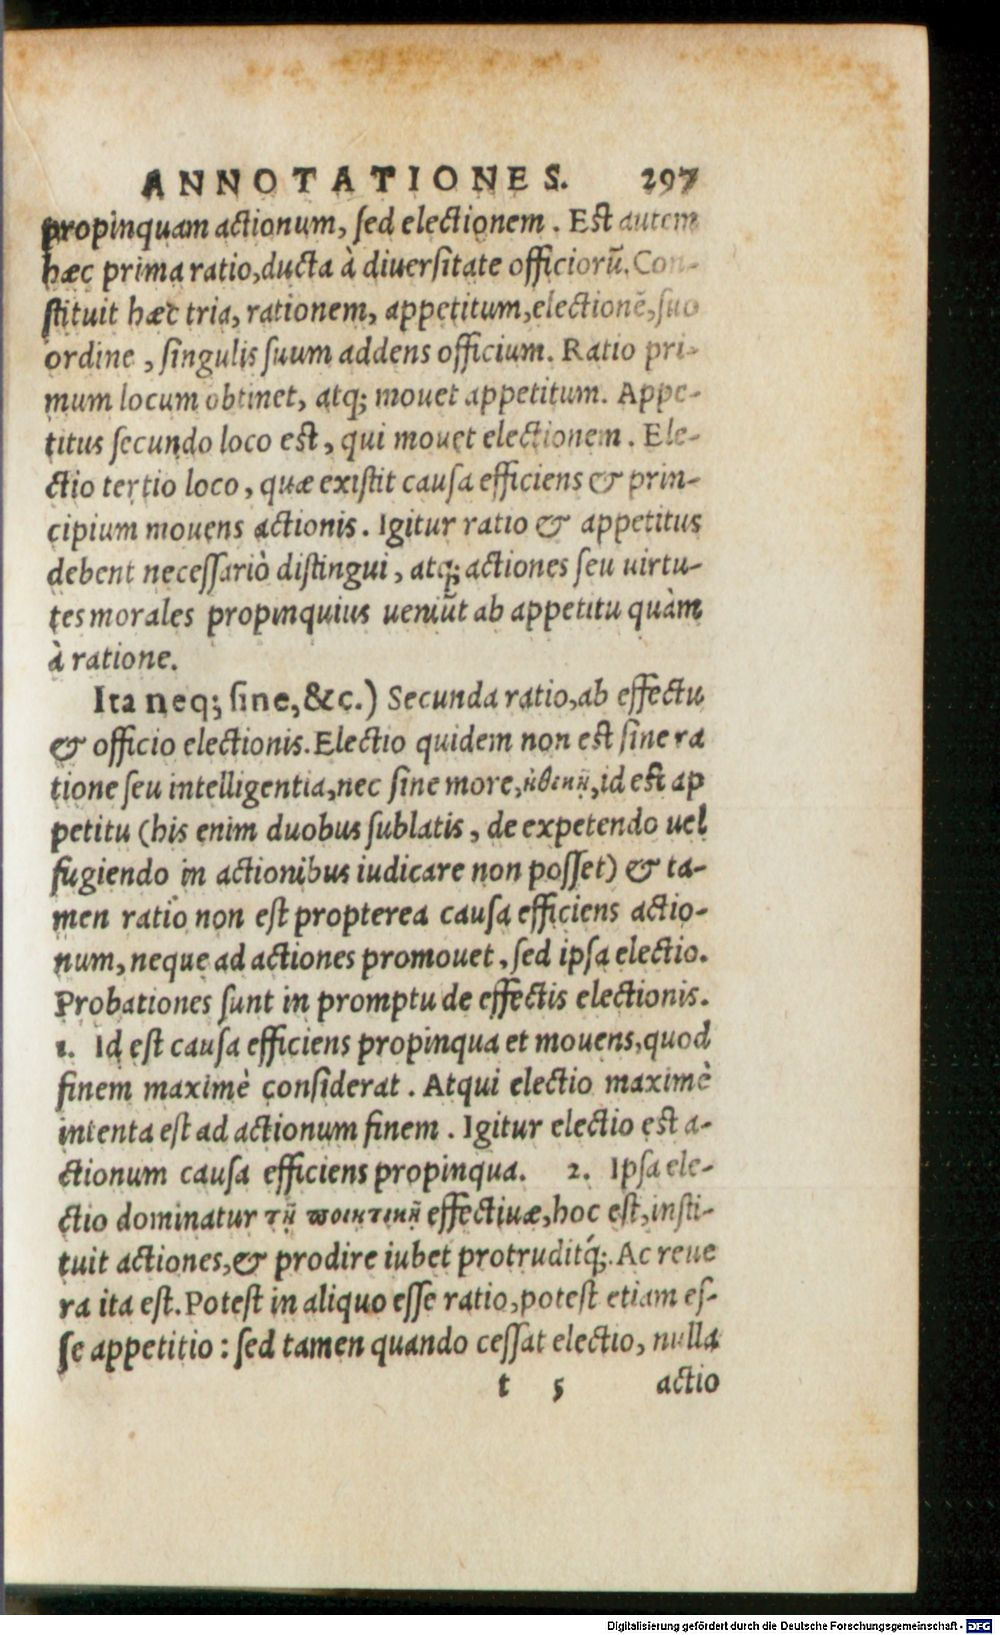 ANNOTATIONES. 297
propinquam actionum, sed electionem. Est autem
hæc prima ratio, ducta à diuersitate officiorũ. Con-
stituit hæc tria, rationem, appetitum, electionẽ, suo
ordine, singulis suum addens officium. Ratio pri-
mum locum obtinet, atq; mouet appetitum. Appe-
titus secundo loco est, qui mouet electionem. Ele-
ctio tertio loco, quæ existit causa efficiens & prin-
cipium mouens actionis. Igitur ratio & appetitus
debent necessariò distingui, atq; actiones seu uirtu-
tes morales propinquius ueniũt ab appetitu quàm
à ratione.
Ita neq; sine, &c.) Secunda ratio, ab effectu
& officio electionis. Electio quidem non est sine ra
tione seu intelligentia, nec sine more, ἠθικῆ, id est ap
petitu (his enim duobus sublatis, de expetendo uel
fugiendo in actionibus iudicare non posset) & ta-
men ratio non est propterea causa efficiens actio-
num, neque ad actiones promouet, sed ipsa electio.
Probationes sunt in promptu de effectis electionis.
1. Id est causa efficiens propinqua et mouens, quod
finem maximè considerat. Atqui electio maximè
intenta est ad actionum finem. Igitur electio est a-
ctionum causa efficiens propinqua. 2. Ipsa ele-
ctio dominatur τῆ ποιητικῆ effectiuæ, hoc est, insti-
tuit actiones, & prodire iubet protruditq́;. Ac reue
ra ita est. Potest in aliquo esse ratio, potest etiam es-
se appetitio: sed tamen quando cessat electio, nulla
t 5 actio
Digitalisierung gefördert durch die Deutsche Forschungsgemeinschaft - DFG